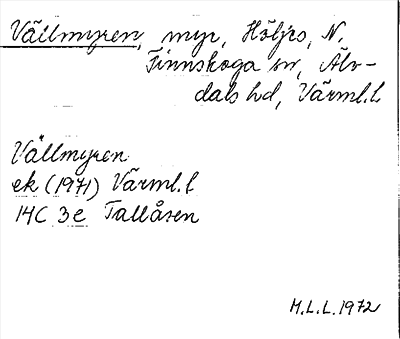 Vällmyren, myr, Höljes, N.
Finnskoga sn, Älv-
dals hd, Värml.l
Vällmyren
ek (1971) Värml.l
14C 3e Tallåsen
M.L.L. 1972